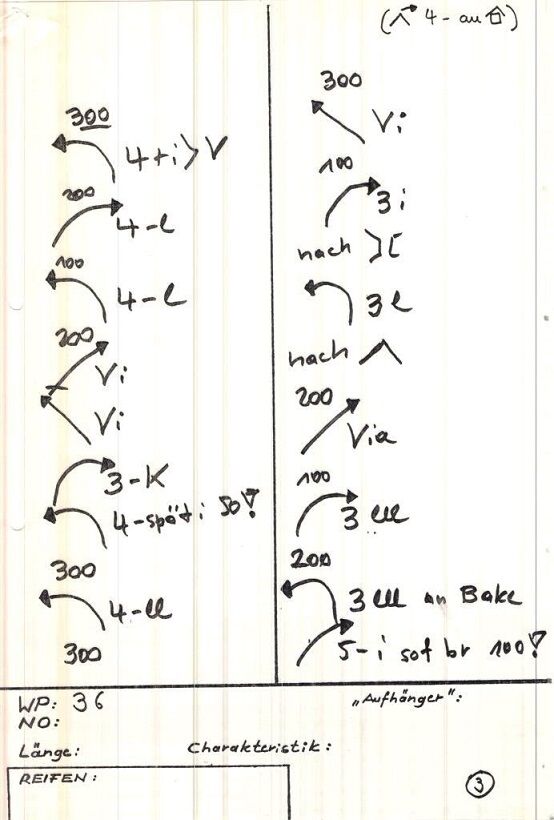 300
4+i>V
200
4-l
100
4-l
200
Vi
Vi
3-K
4-spät i 50!
300
4-ll
300
(4-au)
300
Vi
100
3i
nach
3l
nach
200
Via
100
3 lll
200
3 lll an Bake
5-i sof br 100!
WP: 36
NO:
Länge:
Charakteristik:
„Aufhänger“:
REIFEN:
3